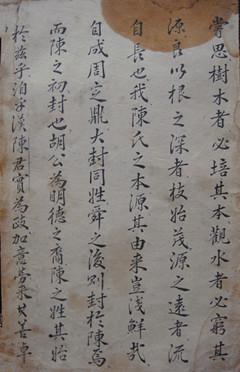 嘗思樹木者必培其本觀水者必窮其
源良以根之深者枝始茂源之遠者流
自長也我陳氏之本源其由来豈浅鮮哉
自成周定鼎大封同姓舜之後別封於陳焉
而陳之初封也胡公為明德之裔陳之姓其始
於兹乎洎乎漢陳君寔為政加意勞来大甚卓